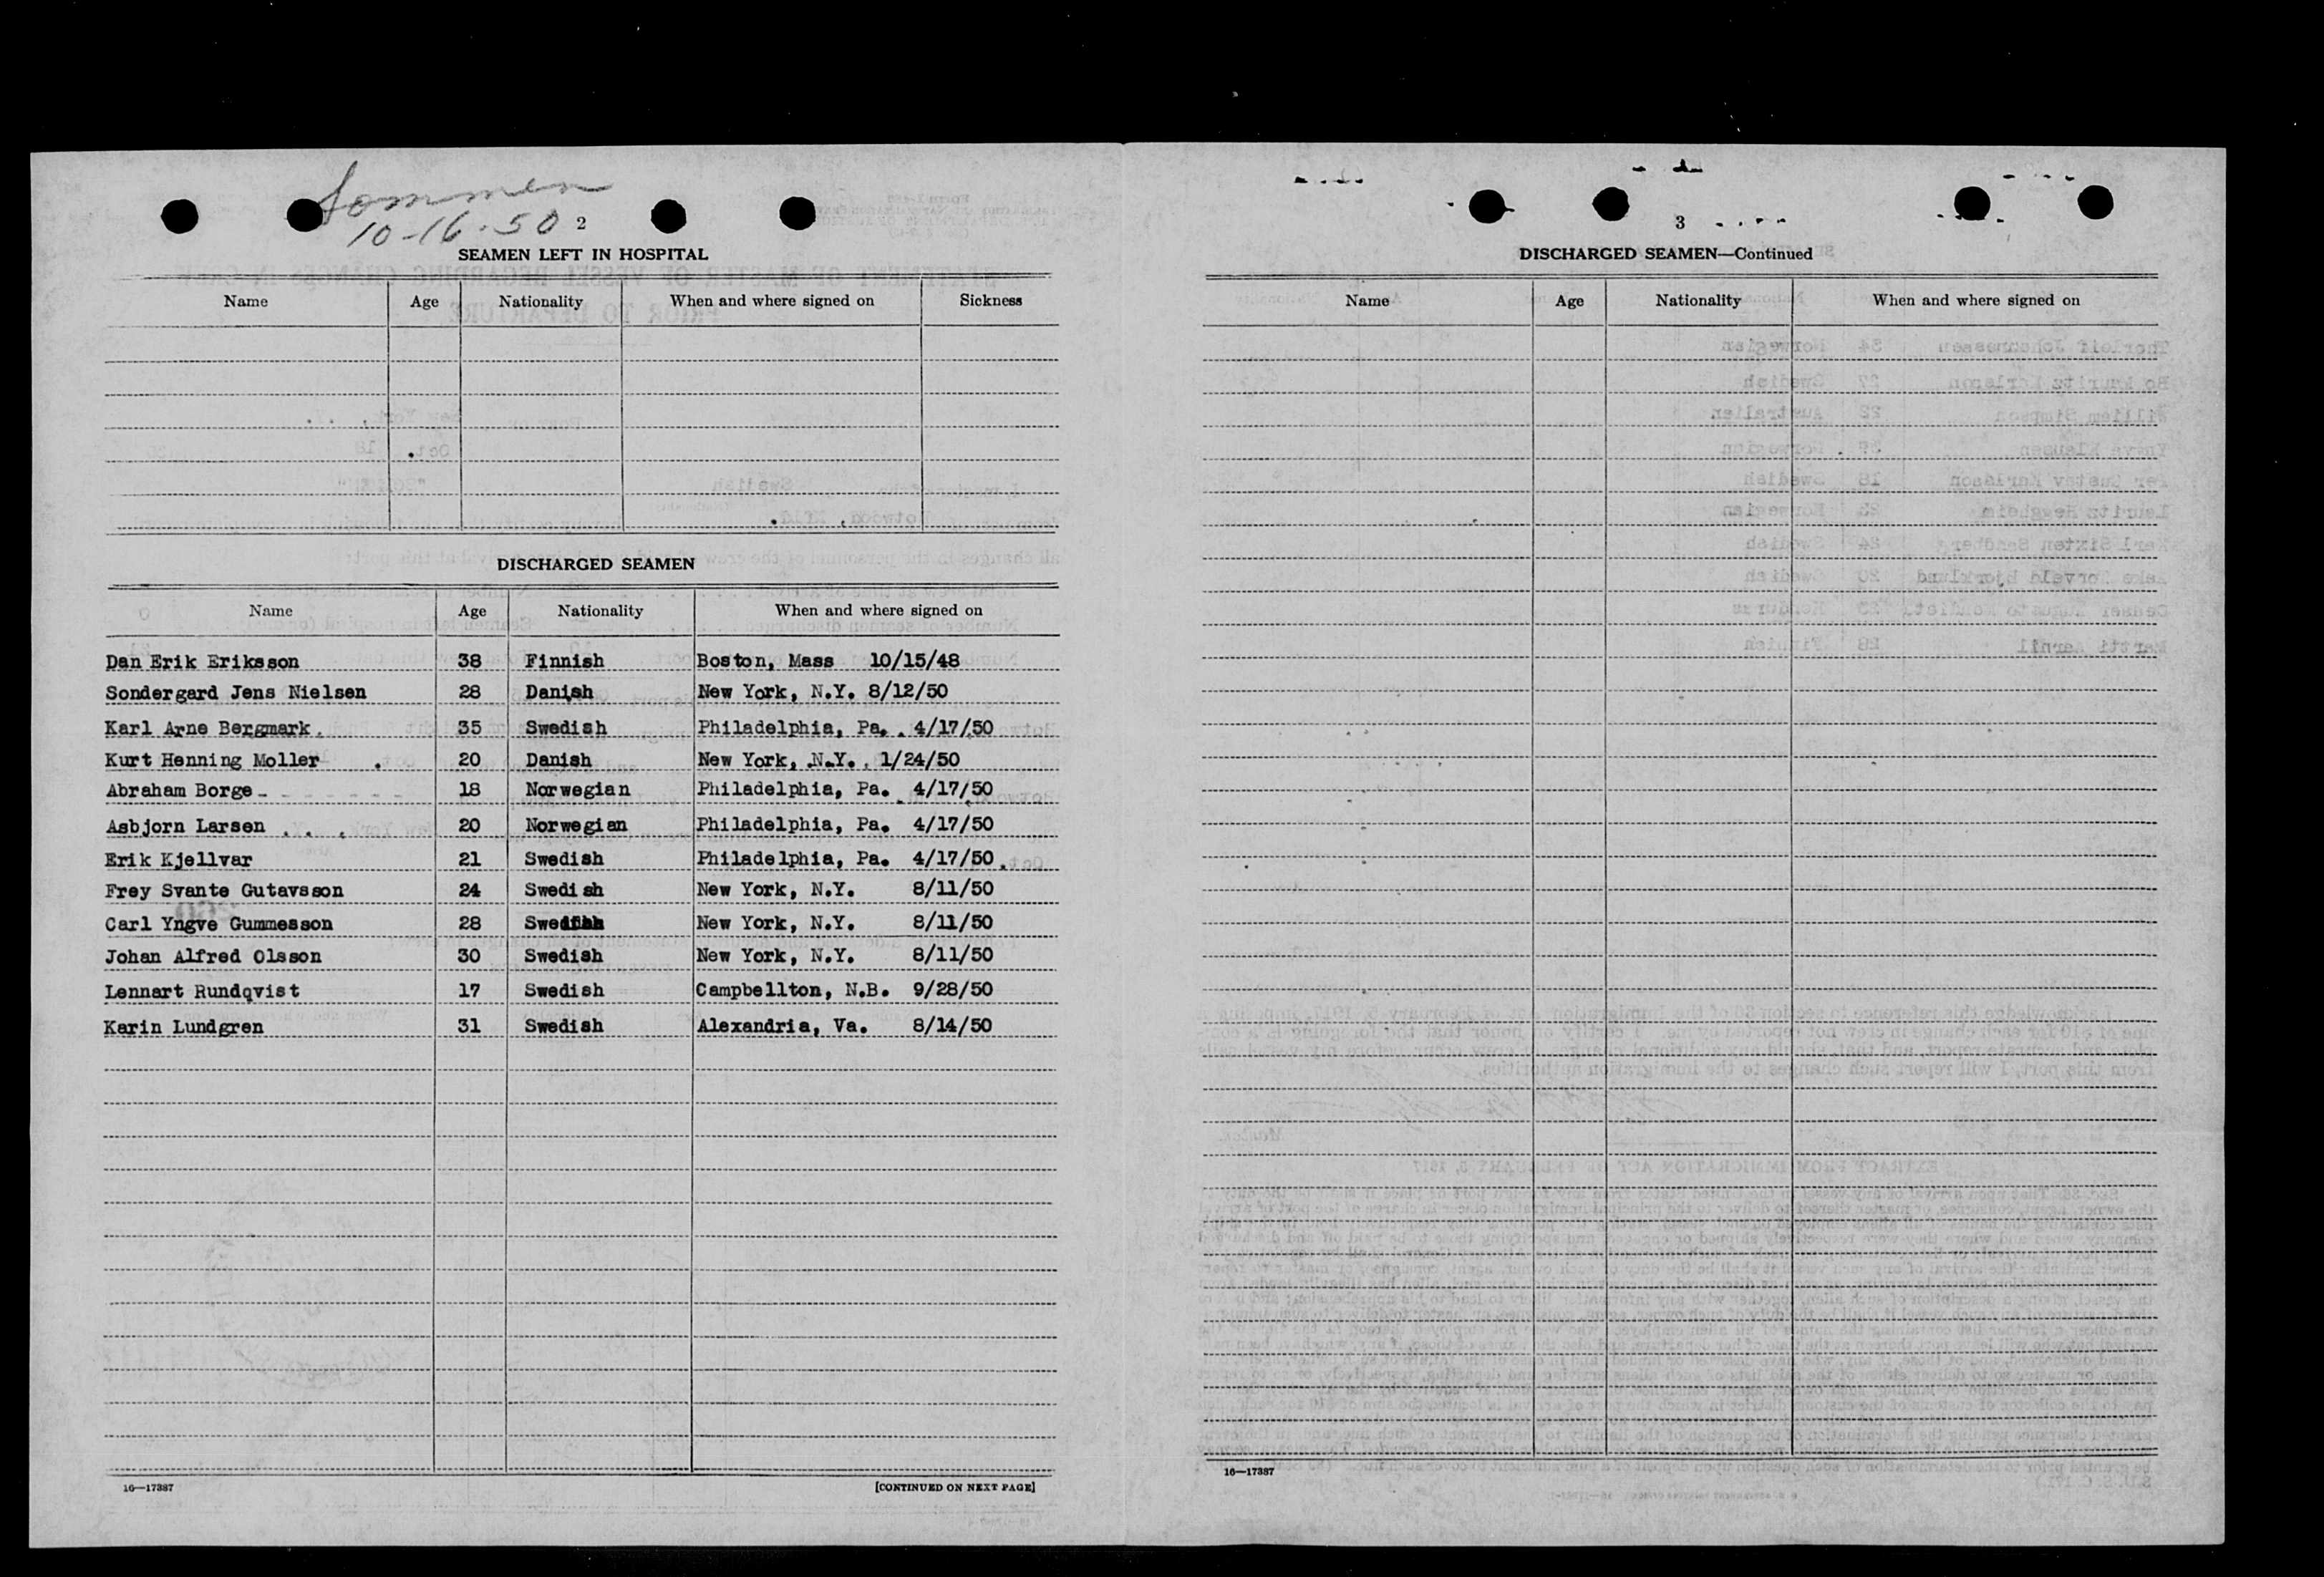 Sommen
10-16-50 2
SEAMEN LEFT IN HOSPITAL
Name Age Nationality When and where signed on Sickness
DISCHARGED SEAMEN
Name Age Nationality When and where signed on
Dan Erik Eriksson 38 Finnish Boston, Mass 10/15/48
Sondergard Jens Nielsen 28 Danish New York, N.Y. 8/12/50
Karl Arne Bergmark 35 Swedish Philadelphia, Pa. 4/17/50
Kurt Henning Moller 20 Danish New York, N.Y. 1/24/50
Abraham Borge 18 Norwegian Philadelphia, Pa. 4/17/50
Asbjorn Larsen 20 Norwegian Philadelphia, Pa. 4/17/50
Erik Kjellvar 21 Swedish Philadelphia, Pa. 4/17/50
Frey Svante Gutavsson 24 Swedish New York, N.Y. 8/11/50
Carl Yngve Gummesson 28 Swedish New York, N.Y. 8/11/50
Johan Alfred Olsson 30 Swedish New York, N.Y. 8/11/50
Lennart Rundqvist 17 Swedish Campbellton, N.B. 9/28/50
Karin Lundgren 31 Swedish Alexandria, Va. 8/14/50
16—17387 [CONTINUED ON NEXT PAGE]
3
DISCHARGED SEAMEN—Continued
Name Age Nationality When and where signed on
16—17387